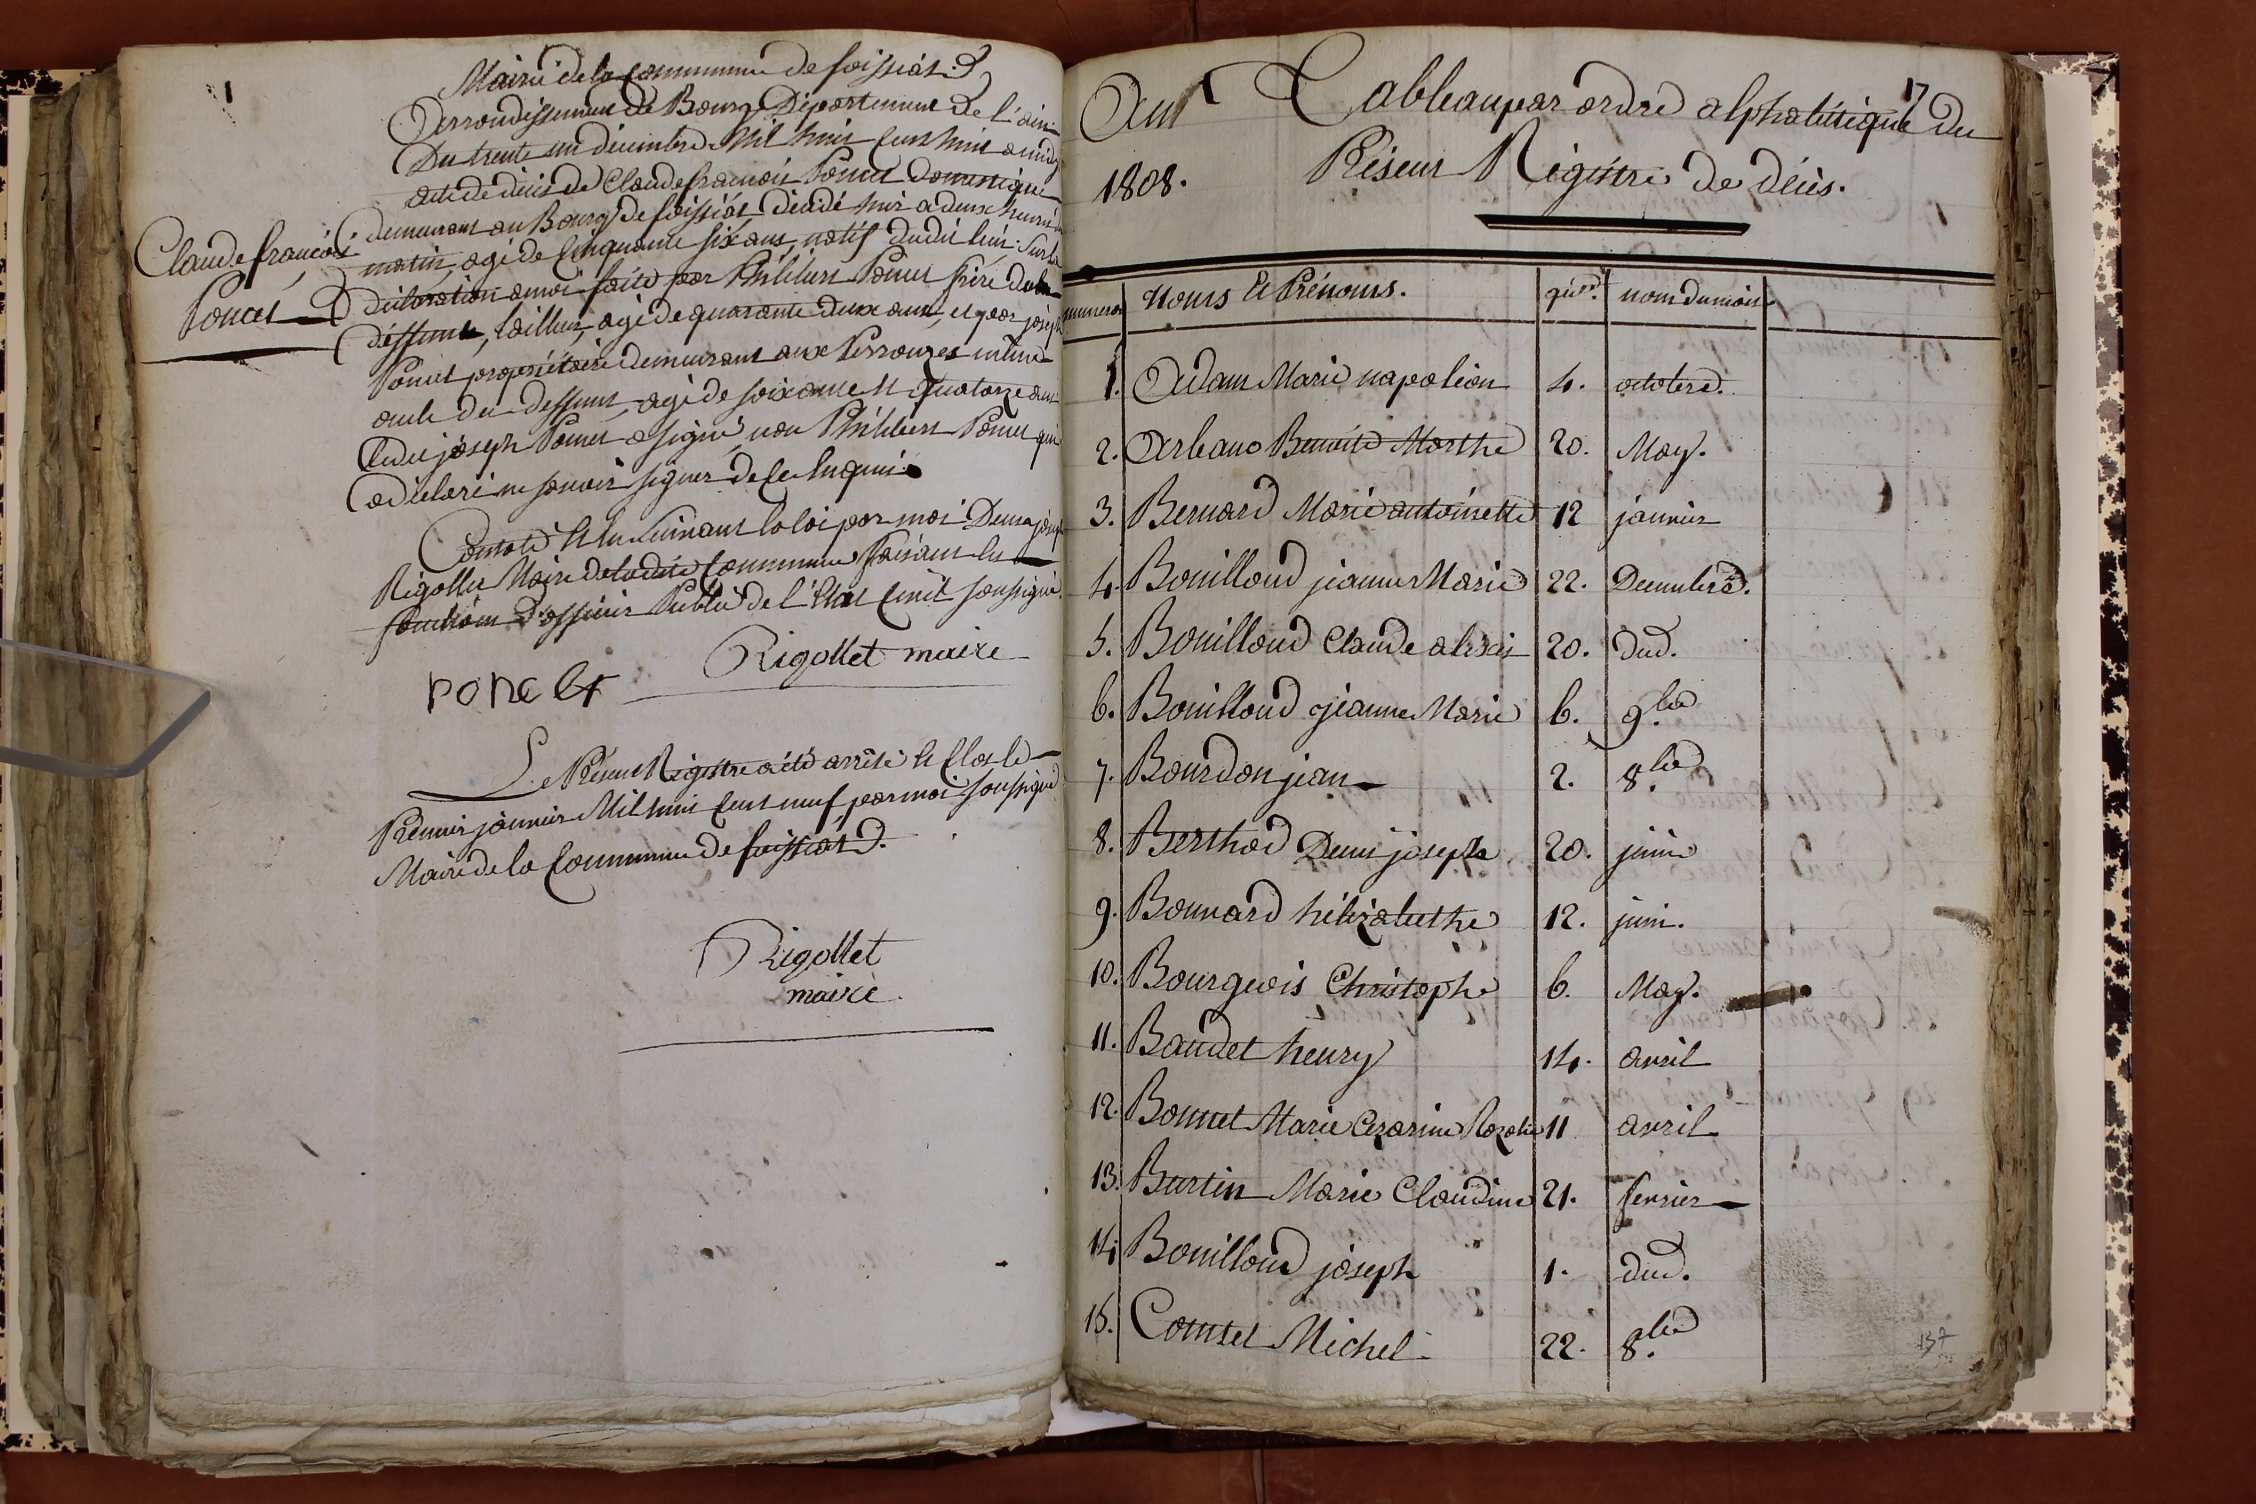 Mairie de la Commune de foissiat
Arrondissement de Bourg Département de l'ain
Du trente un décembre Mil huit Cent huit a midy
acte de décès de Claude françois Poncet Domestique
demeurant au Bourg de foissiat décédé hier a deux heures du
matin, agé de Cinquante six ans, natif dudit lieu. Sur la
déclaration a moi faite par Philibert Poncet frère du
deffunt, tailleur, agé de quarante deux ans, et par joseph
Poncet propriétaire demeurant aux
oncle du deffunt, agé de soixante et quatorze ans
Ledit joseph Poncet a signé, non Philibert Poncet qui
a déclaré ne savoir signer de ce Enquis
Claude françois
Poncet
Constaté et lu Suivant la loi par moi Denis joseph
Rigollet Maire de ladite Commune faisant les
fonctions D'officier Public de l'état Civil soussigné.
Rigollet maire
poncet
Le Présent Registre a été arrêté et Clos le
Premier janvier Mil huit Cent neuf par moi soussigné
Maire de la Commune de foissiat.
Rigollet
maire.
17
An Tableau par ordre alphabétique du
1808. Présent Régistre de décès.
numeros Noms Et Prénoms. nom du mois
1. Adam Marie napoléon 4. octobre.
2. Arbano Benoite Marthe 20. May.
3. Bernard Marie antoinette 12 janvier
4. Bouilloud jeanne Marie 22. Decembre.
5. Bouilloud Claude 20. dud.
6. Bouilloud jeanne Marie 6. 9.bre
7. Bourdon jean 2. 8.bre
8. Berthod Denis joseph 20. juin
9. Bonnard hélizabethe 12. juin.
10. Bourgeois Christophe 6. May.
11. Baudet henry 14. avril
12. Bonnet Marie Cezarine Rozalie 11 avril
13. Burtin Marie Claudine 21. fevrier
14. Bouilloud joseph 1. dud.
15. Comtet Michel 22. 8.bre
137